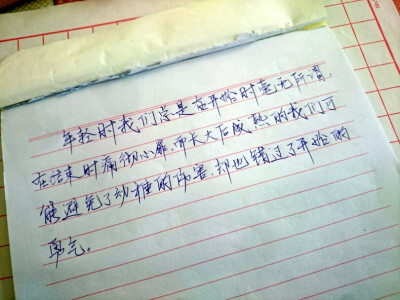 年轻时我们总是在开始时毫无所谓，
在结束时痛彻心扉，而长大后成熟的我们可
能避免了幼稚的伤害，却也错过了开始的
勇气。